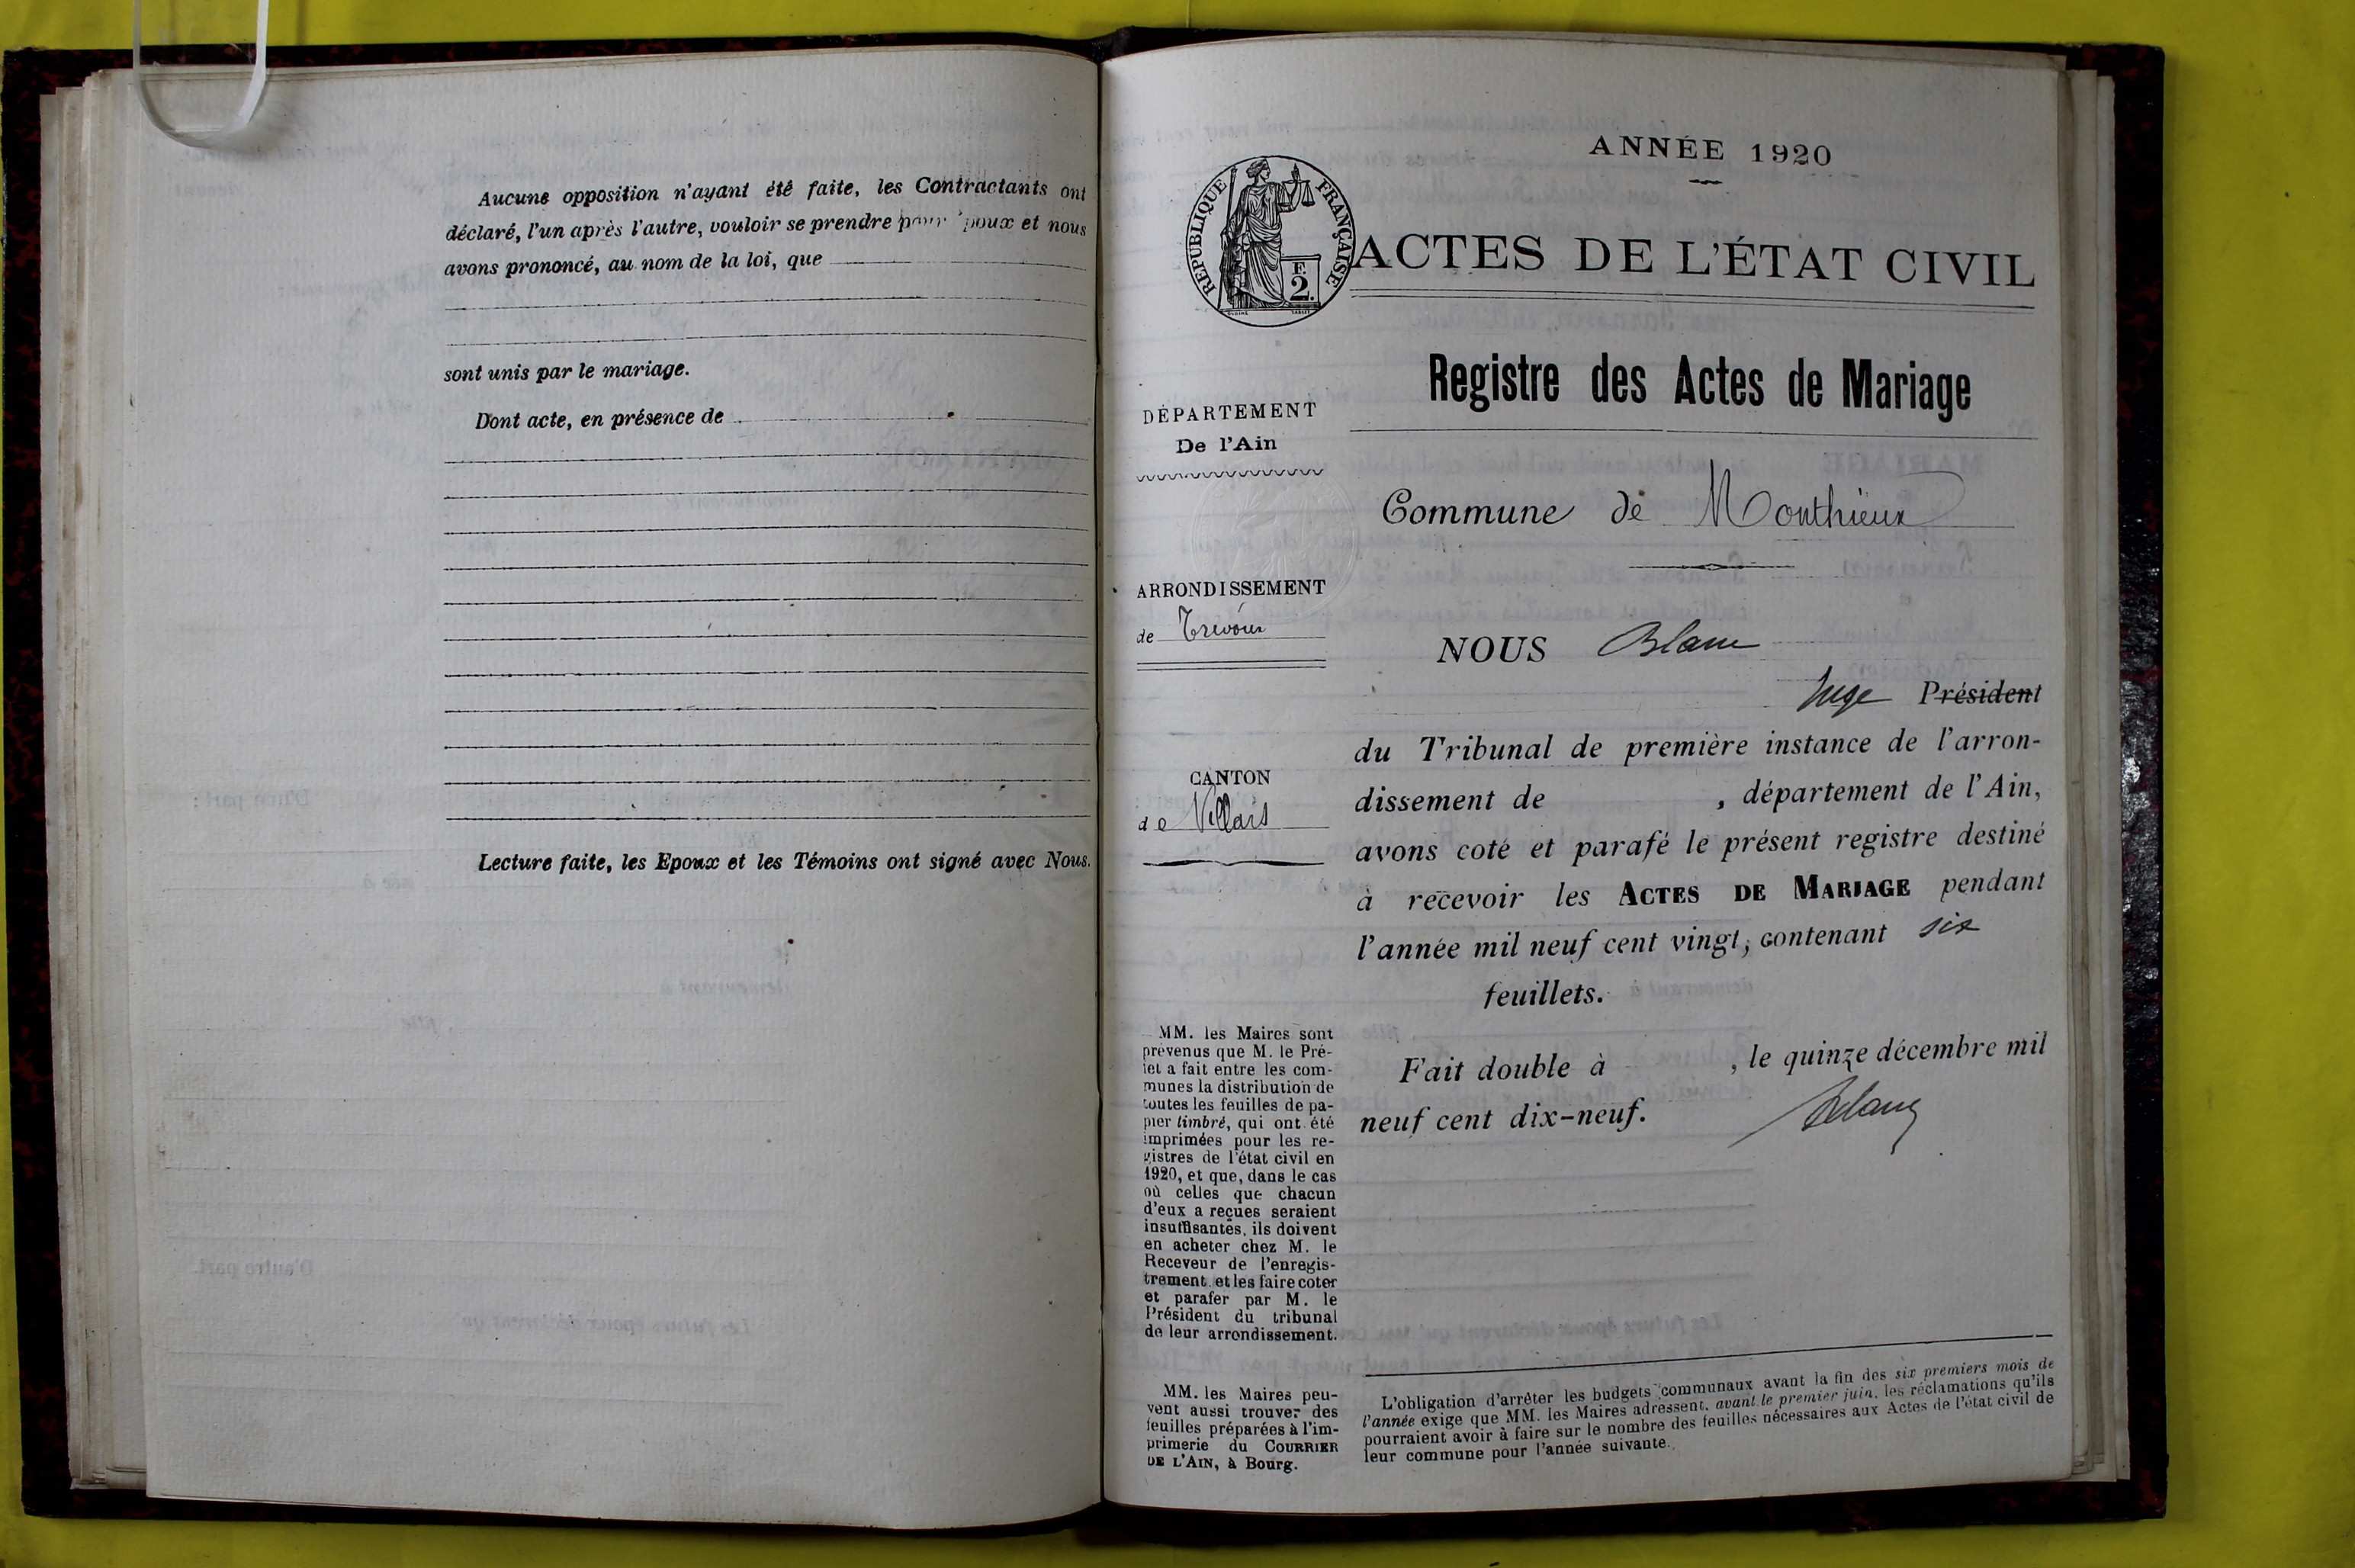 Aucune opposition n'ayant été faite, les Contractants ont
déclaré, l'un après l'autre, vouloir se prendre pour poux et nous
avons prononcé, au nom de la loi, que
sont unis par le mariage.
Dont acte, en présence de
Lecture faite, les Epoux et les Témoins ont signé avec Nous.
ANNÉE 1920
RÉPUBLIQUE FRANÇAISE
F.
2.
ACTES DE L'ÉTAT CIVIL
Registre des Actes de Mariage
DÉPARTEMENT
De l'Ain
Commune de Monthieux
ARRONDISSEMENT
de Trévoux
NOUS Blanc
Juge Président
du Tribunal de première instance de l'arron-
dissement de , département de l'Ain,
avons coté et parafé le présent registre destiné
à recevoir les ACTES DE MARIAGE pendant
l'année mil neuf cent vingt, contenant six
feuillets.
Fait double à , le quinze décembre mil
neuf cent dix-neuf. Blanc
CANTON
de Villars
MM. les Maires sont
prévenus que M. le Pré-
fet a fait entre les com-
munes la distribution de
toutes les feuilles de pa-
pier timbré, qui ont été
imprimées pour les re-
gistres de l'état civil en
1920, et que, dans le cas
où celles que chacun
d'eux a reçues seraient
insuffisantes, ils doivent
en acheter chez M. le
Receveur de l'enregis-
trement et les faire coter
et parafer par M. le
Président du tribunal
de leur arrondissement.
MM. les Maires peu-
vent aussi trouver des
feuilles préparées à l'im-
primerie du COURRIER
DE L'AIN, à Bourg.
L'obligation d'arrêter les budgets communaux avant la fin des six premiers mois de
l'année exige que MM. les Maires adressent, avant le premier juin, les réclamations qu'ils
pourraient avoir à faire sur le nombre des feuilles nécessaires aux Actes de l'état civil de
leur commune pour l'année suivante.